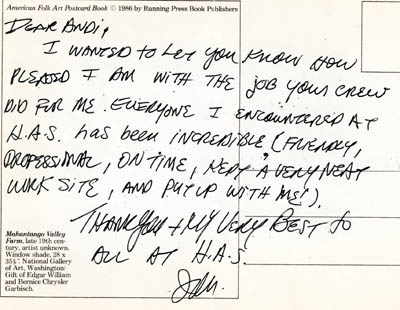 American Folk Art Postcard Book © 1986 by Running Press Book Publishers
DEAR ANDI,
I WANTED TO LET YOU KNOW HOW
PLEASED I AM WITH THE JOB YOUR CREW
DID FOR ME. EVERYONE I ENCOUNTERED AT
H.A.S. has been INCREDIBLE (FRIENDLY,
PROFESSIONAL, ON TIME, KEPT A VERY NEAT
WORK SITE, AND PUT UP WITH ME!).
THANK YOU + MY VERY BEST to
ALL AT H.A.S.
Mahantango Valley
Farm, late 19th cen-
tury, artist unknown.
Window shade, 28 x
35½". National Gallery
of Art, Washington/
Gift of Edgar William
and Bernice Chrysler
Garbisch.